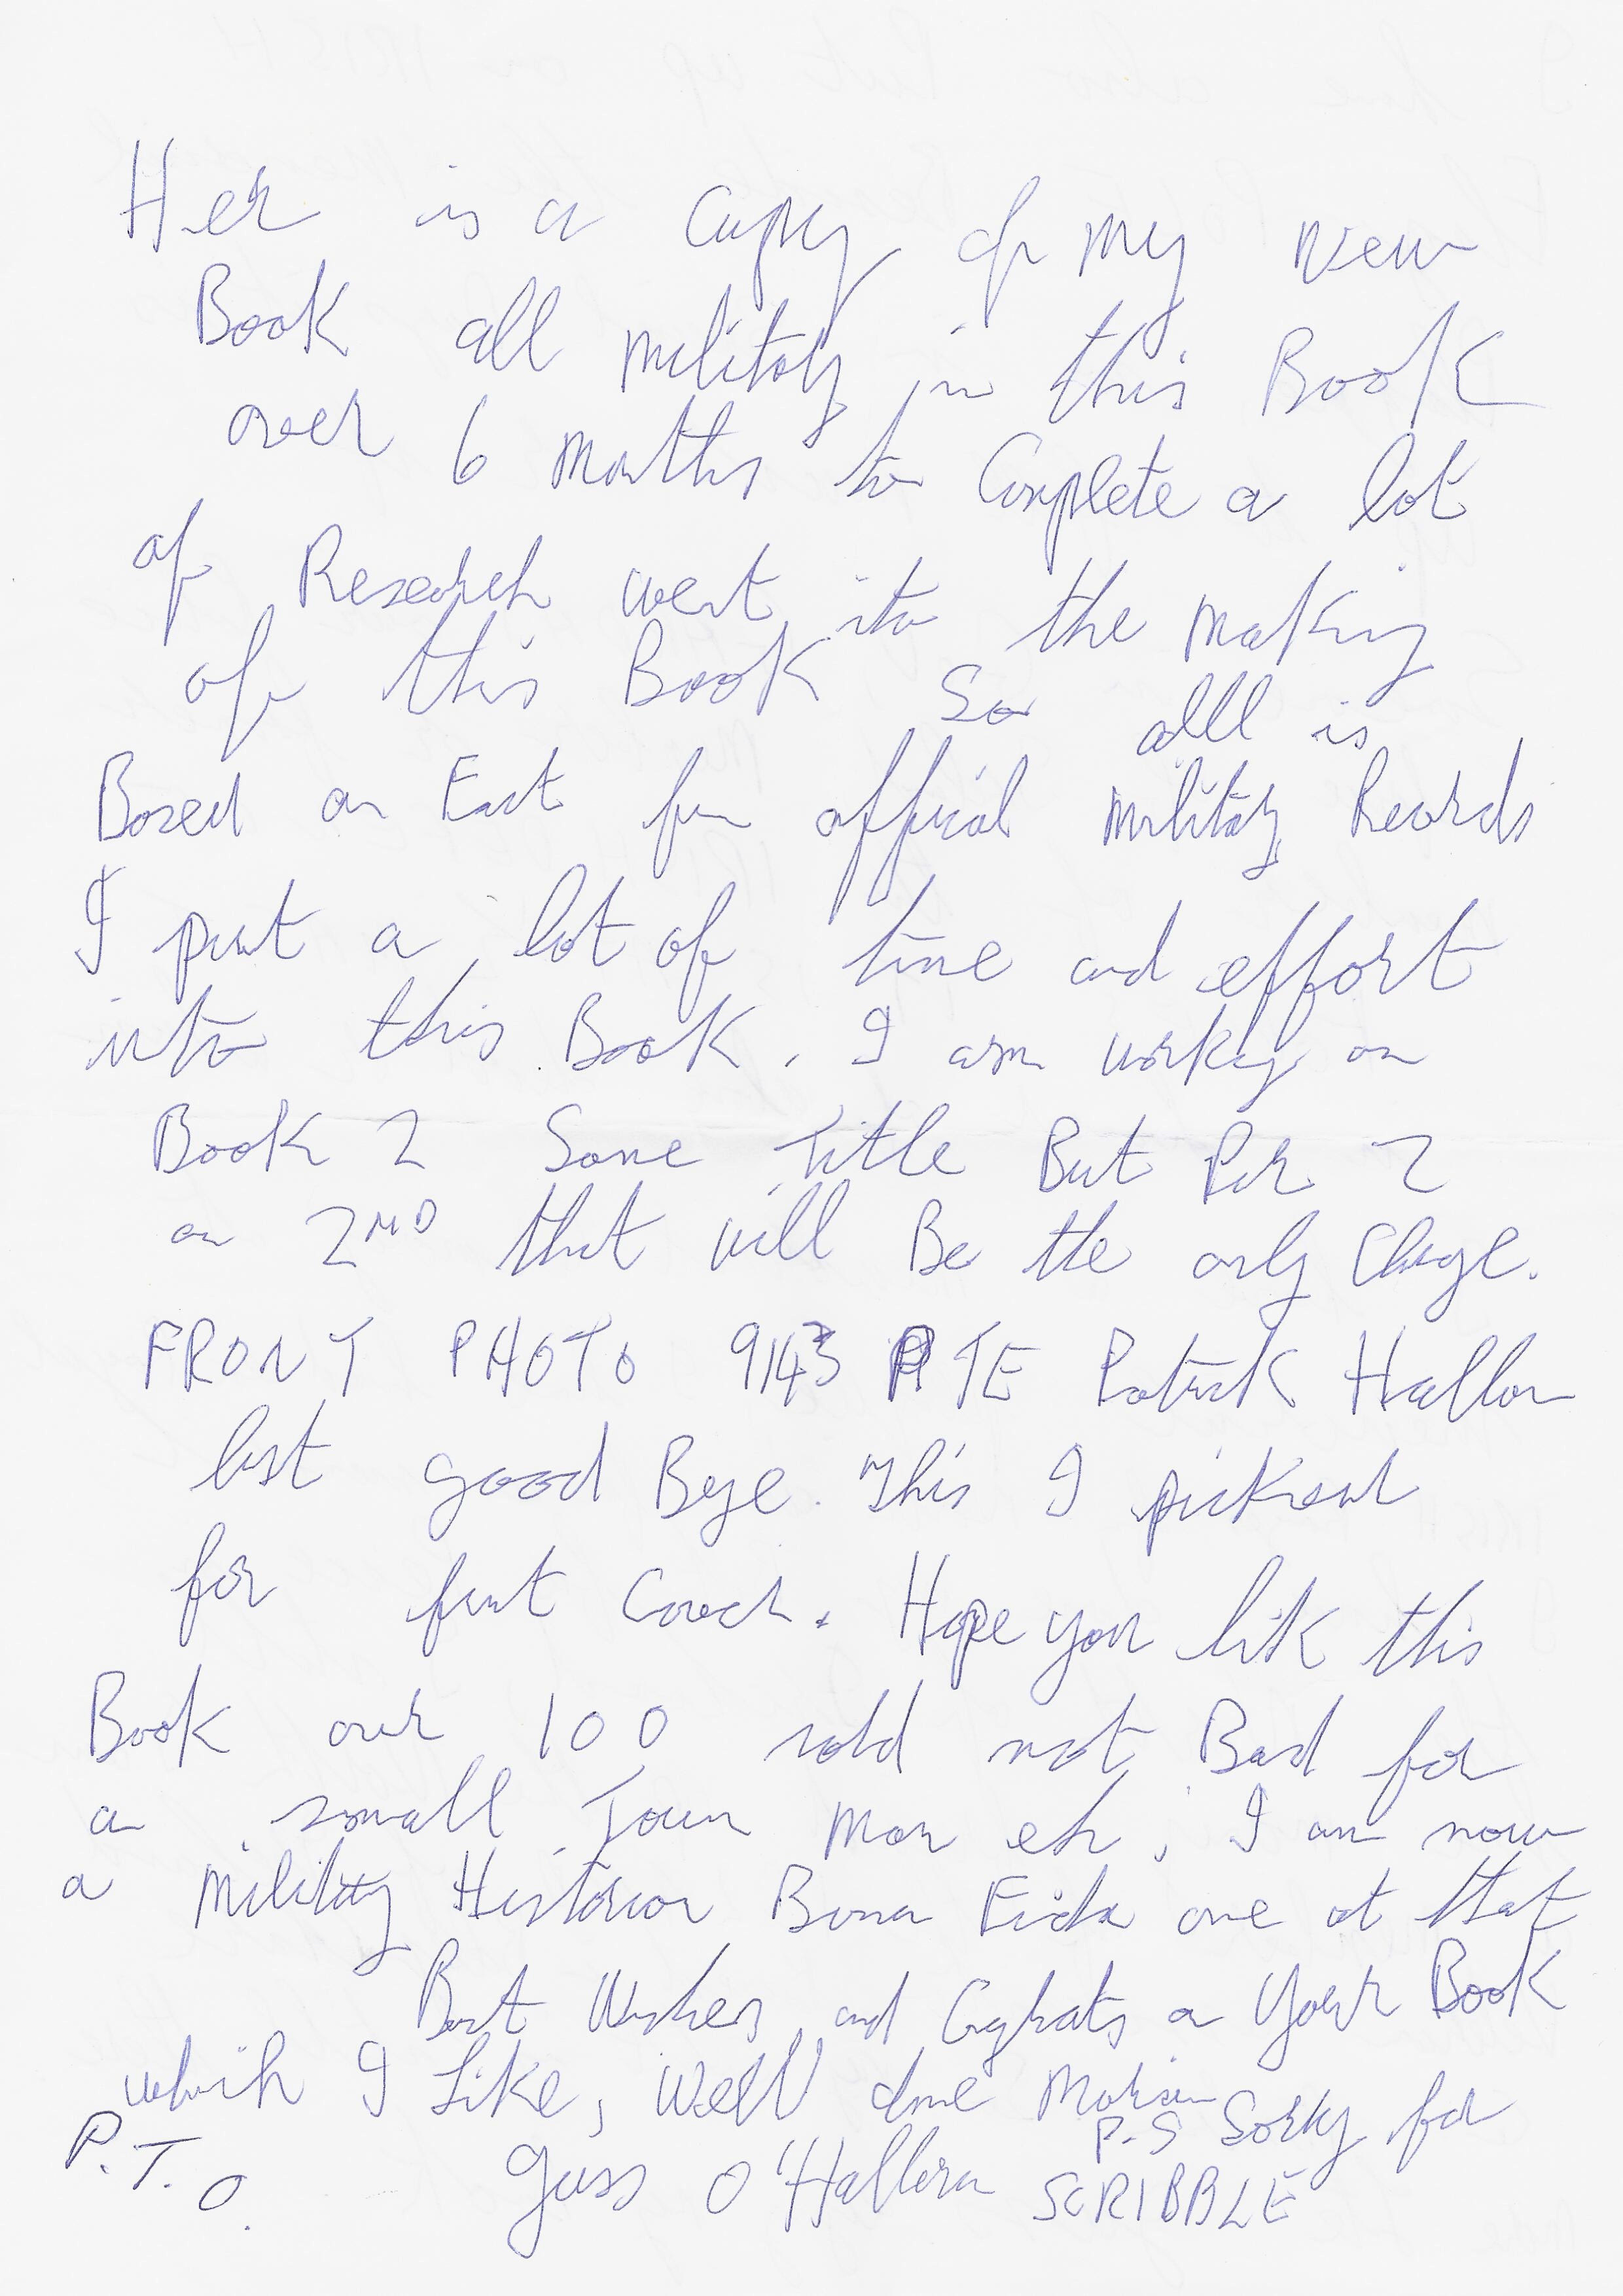 Her is a Cupy of my New
Book all military in this Book
over 6 Months to Complete a lot
of Research went into the making
of this Book So alll is
Based on Fact fr offical military Records
I put a lot of time and effort
into this Book. I am workig on
Book 2 Same Title But Par 2
on 2ND that will Be the only Chage.
FRONT PHOTO 9143 PTE Patrick Hallon
last good Bye. This I picked
for frnt Cover. Hope you lik this
Book over 100 sold not Bad for
a small Town Man eh, I am now
a Military Historian Bona Fida one at that
Best Wishes and Cograts on Your Book
which I Like, Well done
P.T.O. Guss O'Halloran P.S Sorry for
SCRIBBLE